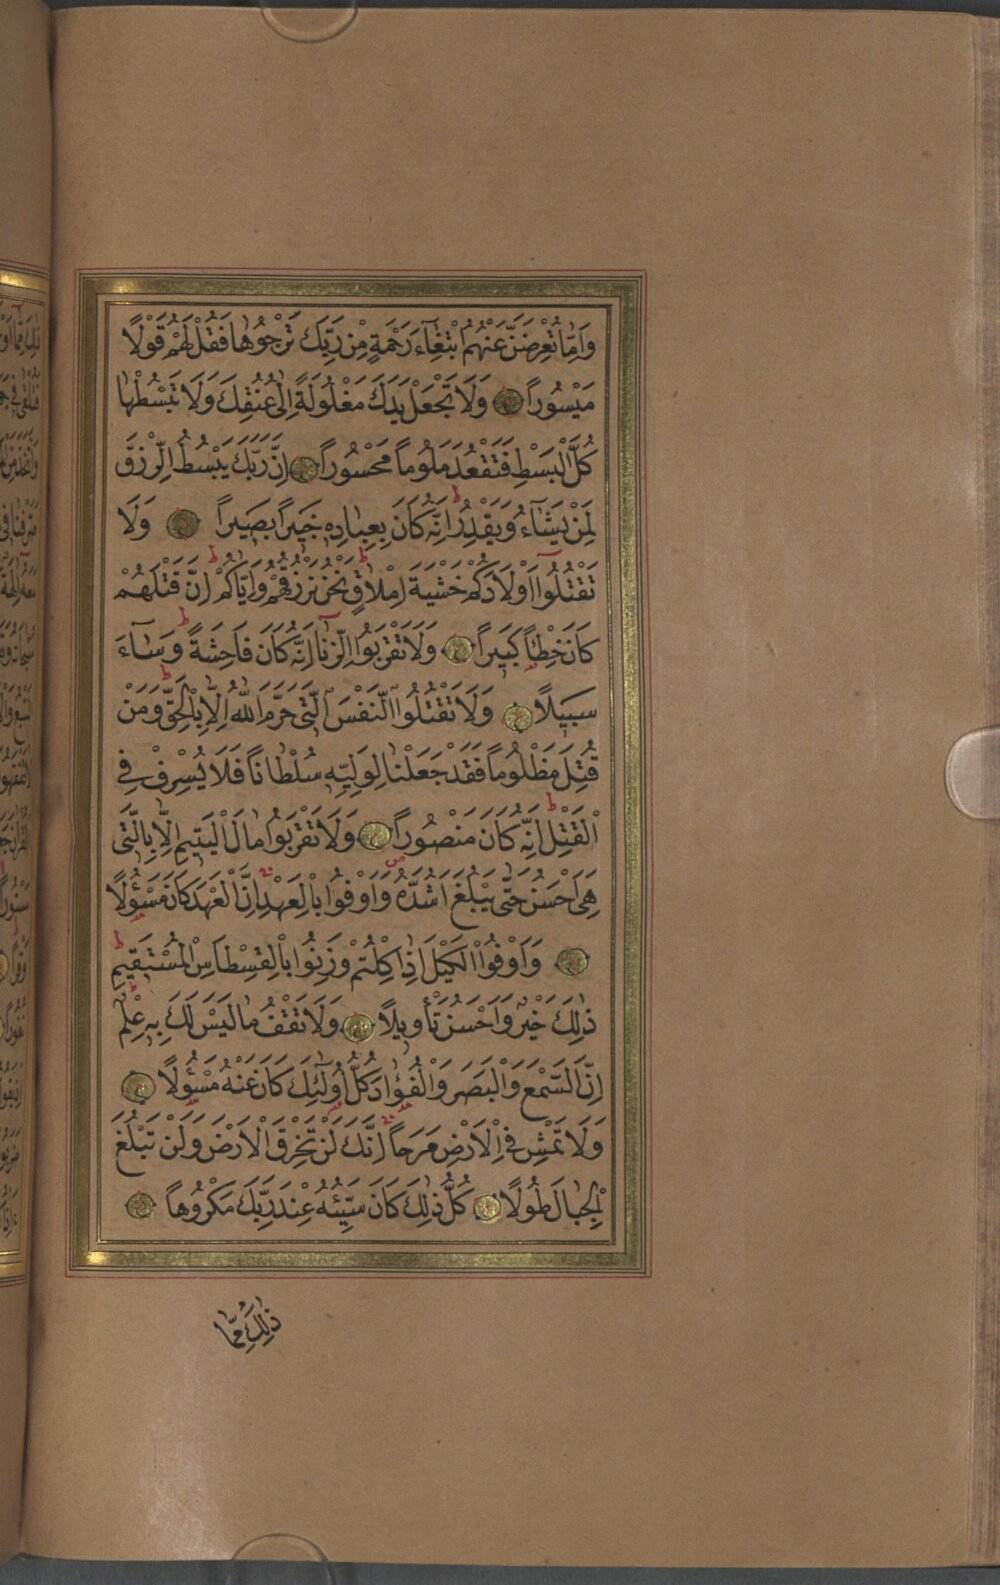 وَاِمَّا تُعْرِضَنَّ عَنْهُمُ ابْتِغَآءَ رَحْمَةٍ مِنْ رَبِّكَ تَرْجُوهَا فَقُلْ لَهُمْ قَوْلًا
مَيْسُورًا وَلَا تَجْعَلْ يَدَكَ مَغْلُولَةً اِلٰى عُنُقِكَ وَلَا تَبْسُطْهَا
كُلَّ الْبَسْطِ فَتَقْعُدَ مَلُومًا مَحْسُورًا اِنَّ رَبَّكَ يَبْسُطُ الرِّزْقَ
لِمَنْ يَشَآءُ وَيَقْدِرُ اِنَّهُ كَانَ بِعِبَادِهِ خَبِيرًا بَصِيرًا وَلَا
تَقْتُلُوٓا اَوْلَادَكُمْ خَشْيَةَ اِمْلَاقٍ نَحْنُ نَرْزُقُهُمْ وَاِيَّاكُمْ اِنَّ قَتْلَهُمْ
كَانَ خِطْـًٔا كَبِيرًا وَلَا تَقْرَبُوا الزِّنٰٓا اِنَّهُ كَانَ فَاحِشَةً وَسَآءَ
سَبِيلًا وَلَا تَقْتُلُوا النَّفْسَ الَّتِى حَرَّمَ اللّٰهُ اِلَّا بِالْحَقِّ وَمَنْ
قُتِلَ مَظْلُومًا فَقَدْ جَعَلْنَا لِوَلِيِّهِ سُلْطَانًا فَلَا يُسْرِفْ فِى
الْقَتْلِ اِنَّهُ كَانَ مَنْصُورًا وَلَا تَقْرَبُوا مَالَ الْيَتِيمِ اِلَّا بِالَّتِى
هِىَ اَحْسَنُ حَتّٰى يَبْلُغَ اَشُدَّهُ وَاَوْفُوا بِالْعَهْدِ اِنَّ الْعَهْدَ كَانَ مَسْؤُلًا
وَاَوْفُوا الْكَيْلَ اِذَا كِلْتُمْ وَزِنُوا بِالْقِسْطَاسِ الْمُسْتَقِيمِ
ذٰلِكَ خَيْرٌ وَاَحْسَنُ تَأْوِيلًا وَلَا تَقْفُ مَا لَيْسَ لَكَ بِهِ عِلْمٌ
اِنَّ السَّمْعَ وَالْبَصَرَ وَالْفُؤَادَ كُلُّ اُولٰٓئِكَ كَانَ عَنْهُ مَسْؤُلًا
وَلَا تَمْشِ فِى الْاَرْضِ مَرَحًا اِنَّكَ لَنْ تَخْرِقَ الْاَرْضَ وَلَنْ تَبْلُغَ
الْجِبَالَ طُولًا كُلُّ ذٰلِكَ كَانَ سَيِّئُهُ عِنْدَ رَبِّكَ مَكْرُوهًا
ذٰلِكَ مِمَّا